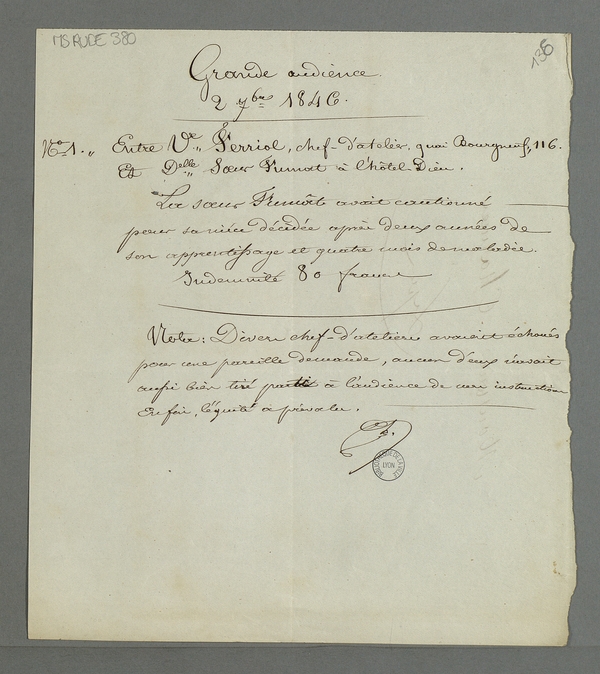 MS RUDE 380
136
Grande audience.
2 7bre 1846.
No 1. „ Entre Ve „ Ferriol, chef-d'atelier, quai Bourgneuf, 116.
Et Delle „ Sœur Prumot à l'hôtel Dieu.
La sœur Prumôt avait cautionné
pour sa nièce décédée après deux années de
son apprentissage et quatre mois de maladie.
Indemnité 80 francs
Nota: Divers chef-d'ateliers avaient échoués
pour une pareille demande, aucun d'eux n'avait
aussi bien tiré parti à l'audience de mes instructions
Enfin, l'équité a prévalu.
BIBLIOTHEQUE DE LA VILLE
LYON